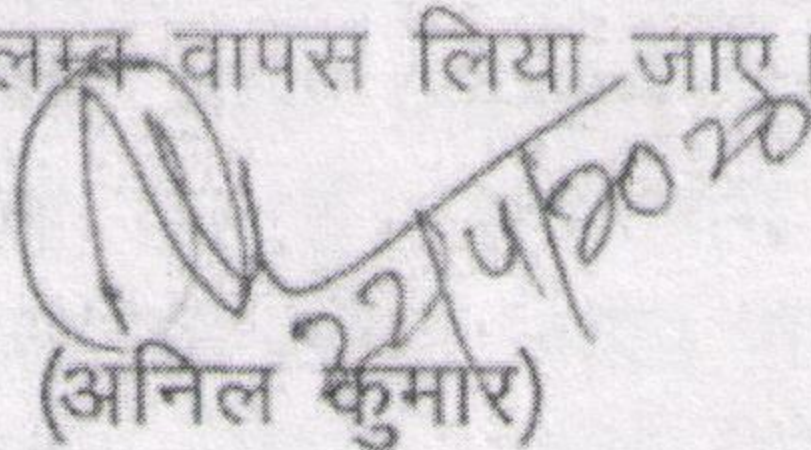 वापस लिया जाए
22/4/2020
(अनिल कुमार)